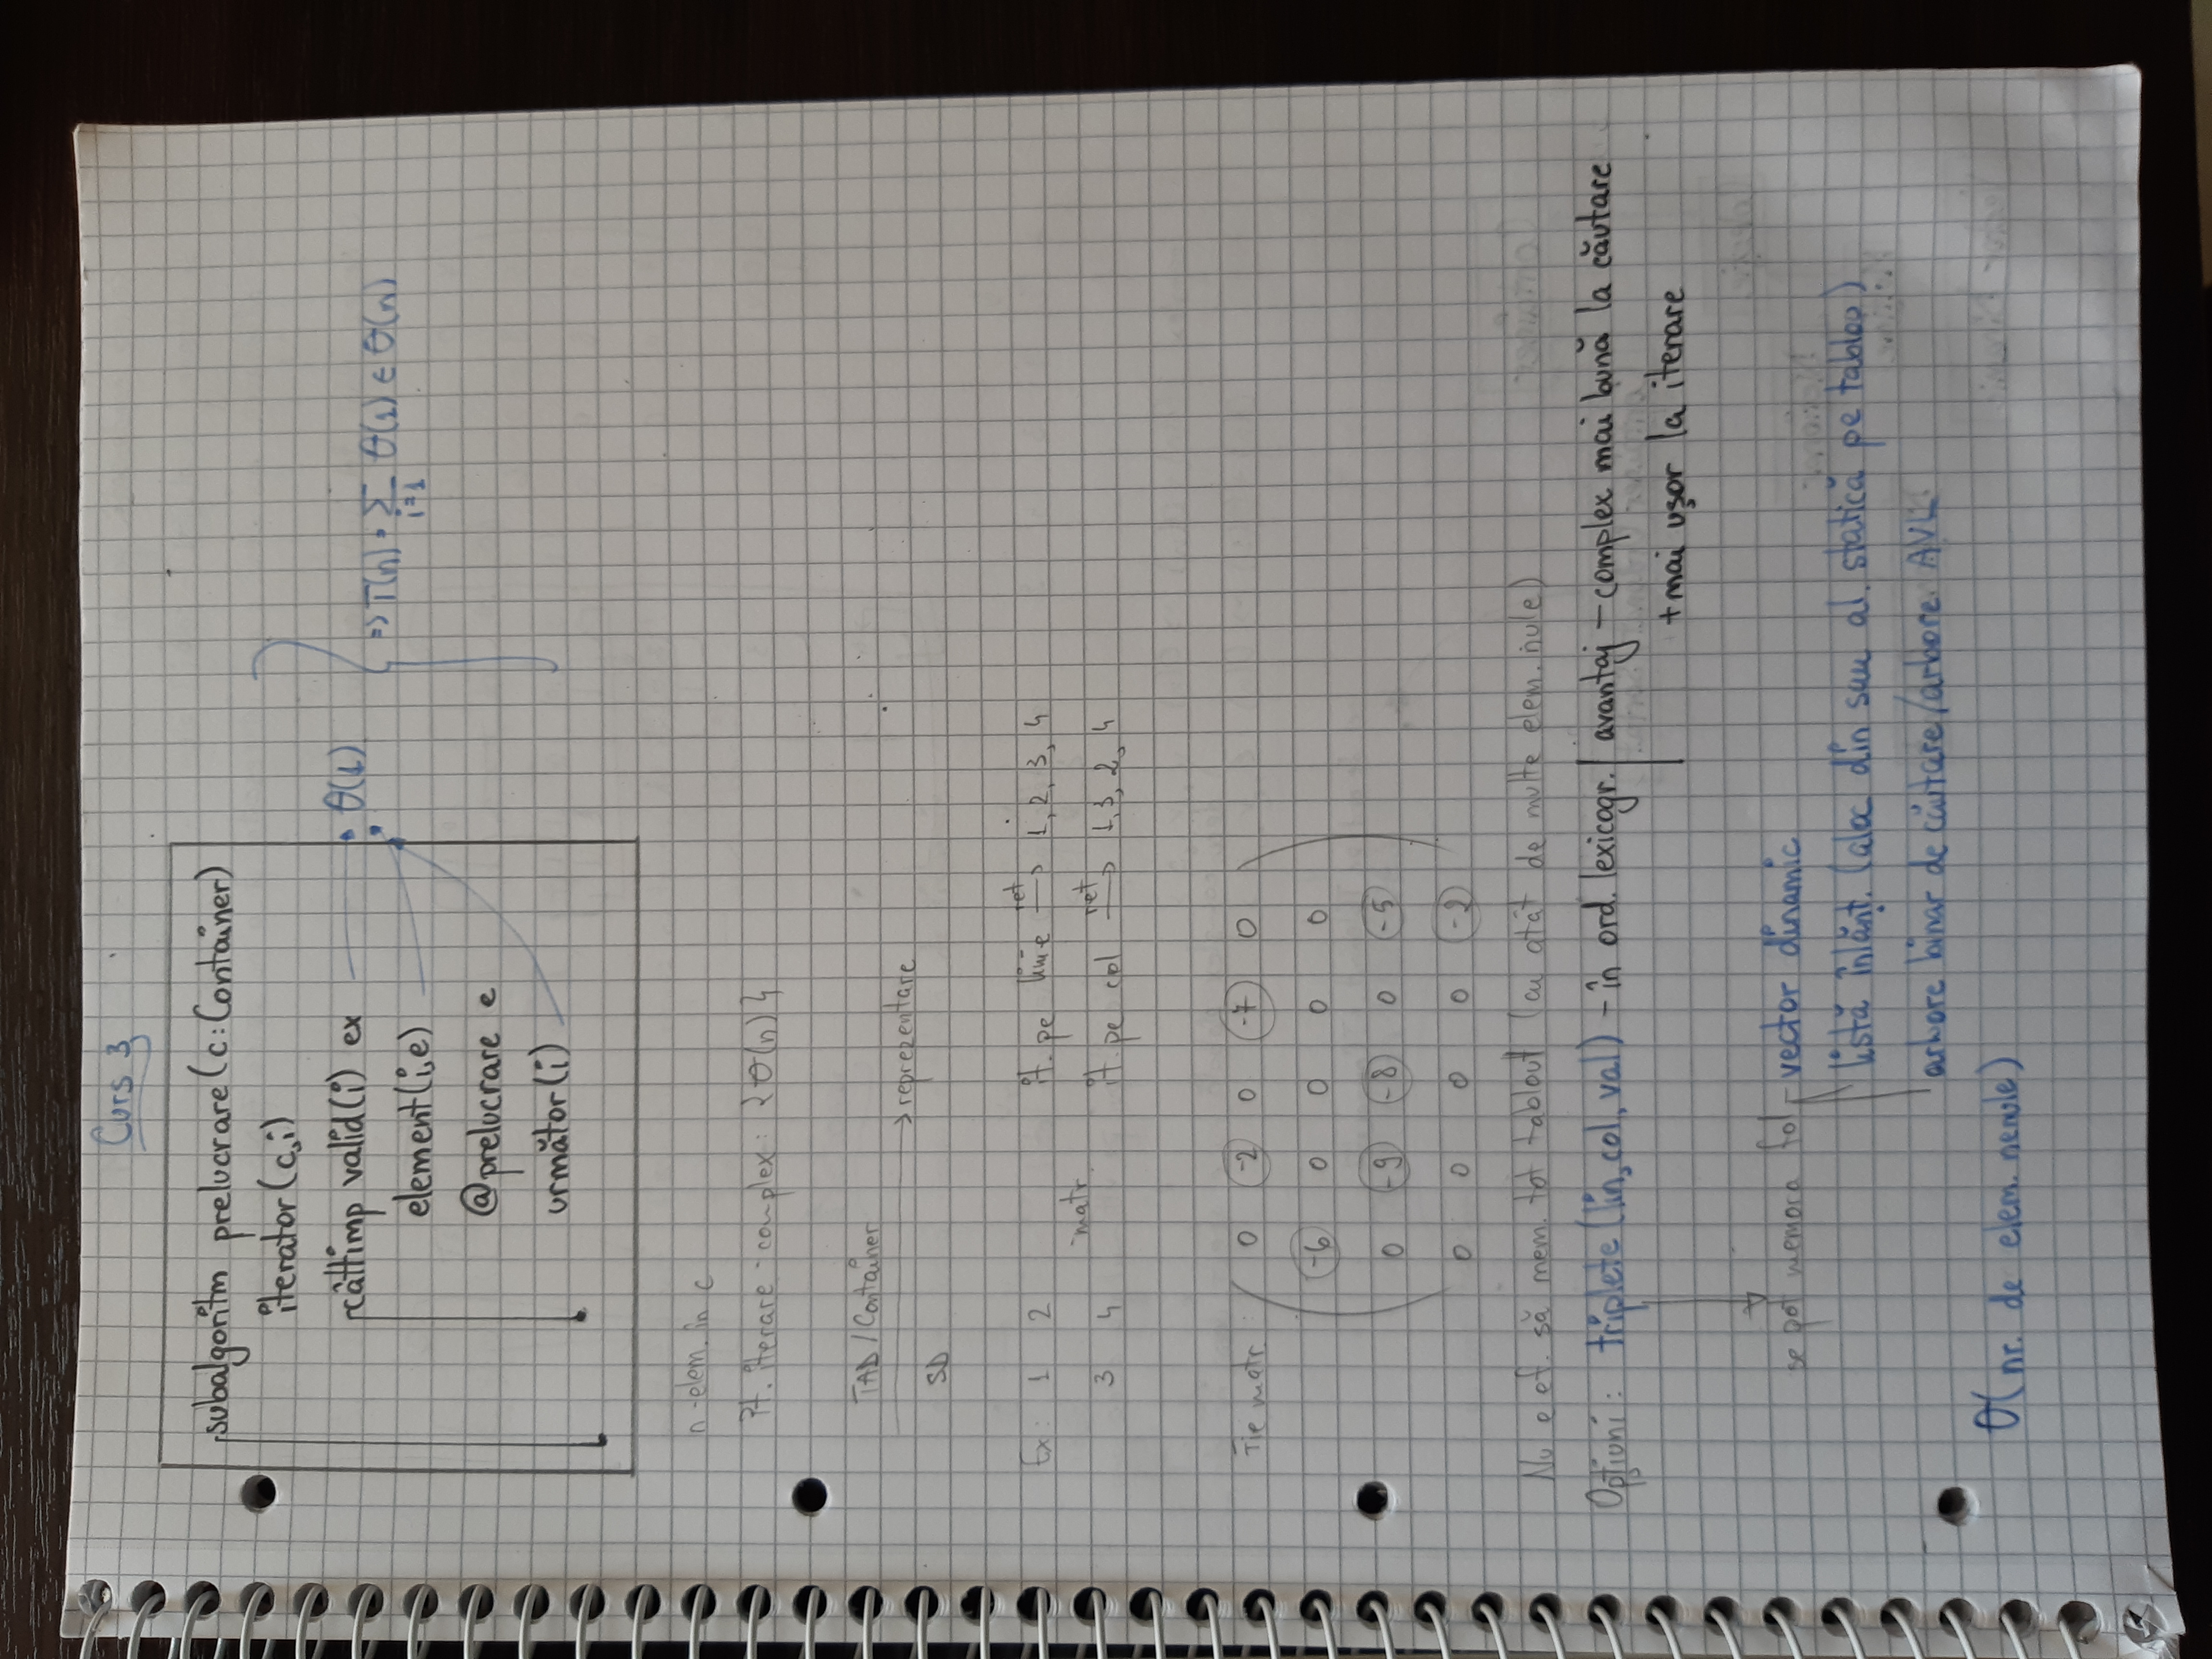 Curs 3
subalgoritm prelucrare(c:Container)
iterator(c,i)
câttimp valid(i) ex
θ(1)
element(i,e)
@prelucrare e
următor(i)
=> T(n) = Σ θ(1) ∈ θ(n)
i=1
n -elem. în c
it. iterare - complex: θ(n)
TAD / Container
→ reprezentare
SD
Ex: 1 2
3 4
matr.
it. pe linie ret → 1, 2, 3, 4
it. pe col ret → 1, 3, 2, 4
Fie matr.:
0 -2 0 -7 0
-6 0 0 0 0
0 -9 -8 0 -5
0 0 0 0 -2
Nu e ef. să mem. tot tabloul (cu atât de multe elem. nule)
Opțiuni: triplete (lin, col, val) - în ord. lexicogr. | avantaj - complex mai bună la căutare
+ mai ușor la iterare
se pot memora fol - vector dinamic
listă înlănț. (aloc din sau al. statică pe tablou)
arbore binar de căutare/arbore AVL
θ(nr. de elem. nenule)